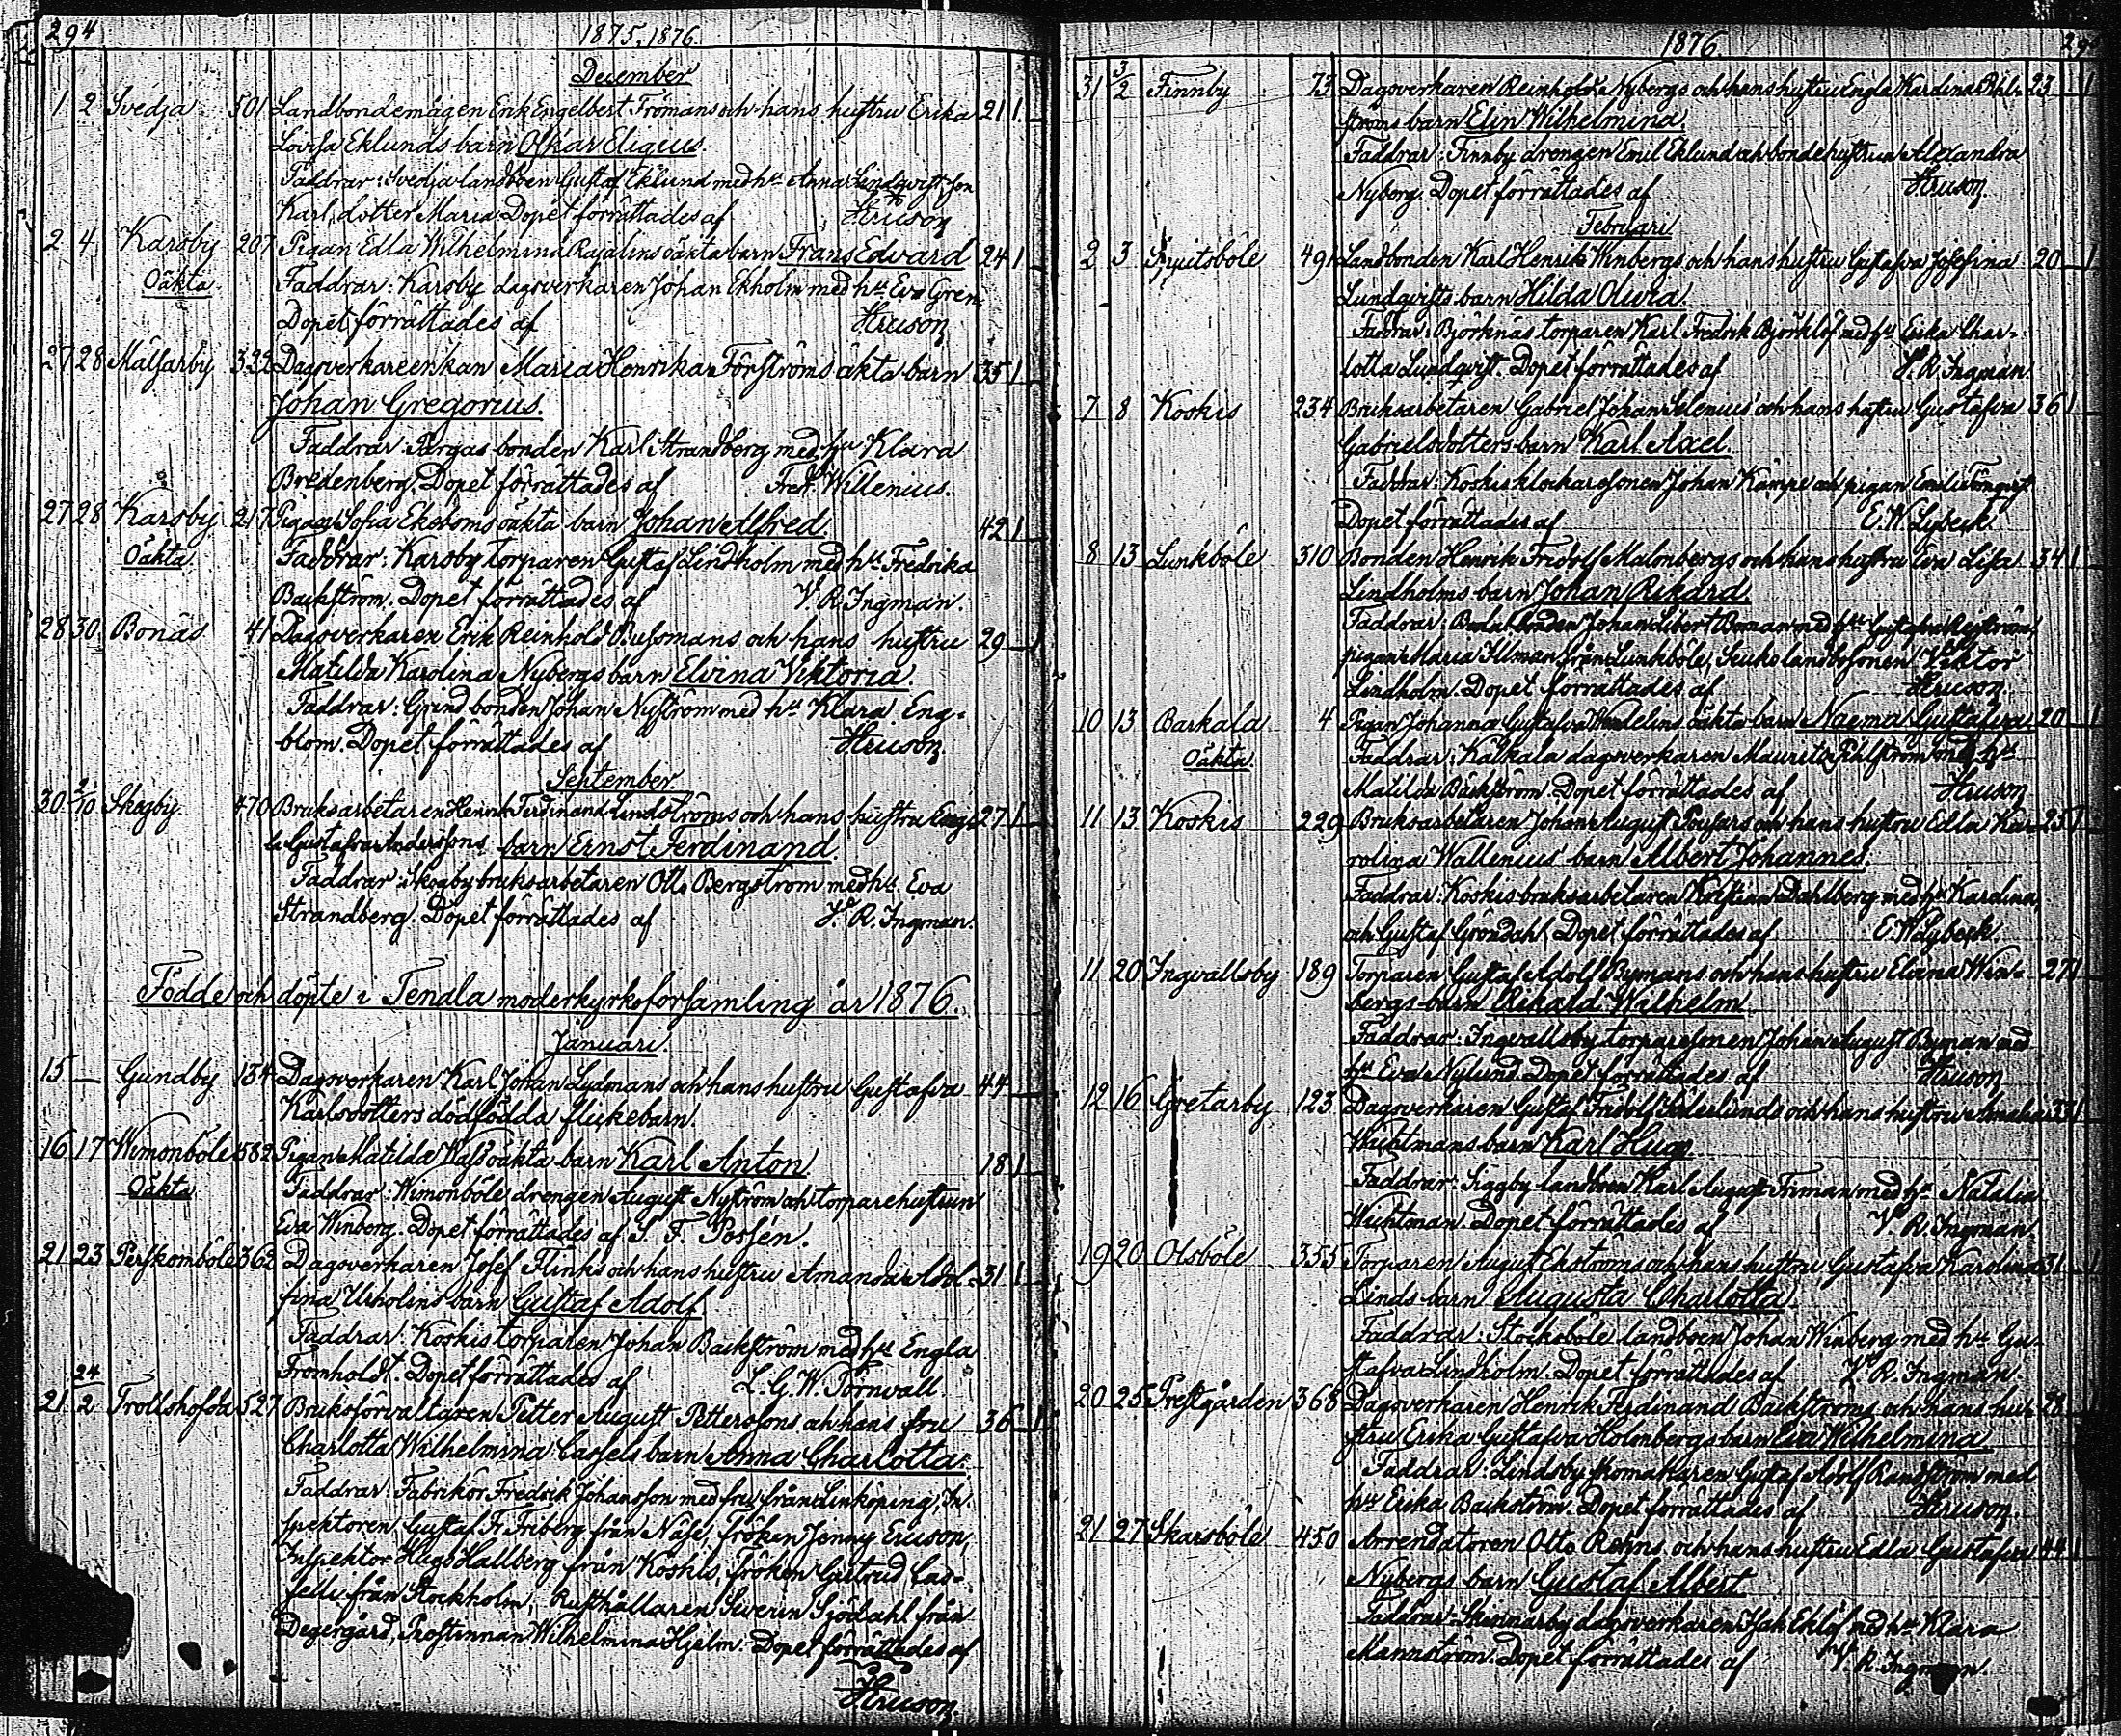 294
1875, 1876.
December
1 2 Svedja 501 Landbondemågen Erik Engelbert Fromans och hans hustru Erika 21 1
Lovisa Eklunds barn Oskar Eligius.
Faddrar: Svedja landboen Gustaf Eklund med hu Anna Lindqvist, son
Karl, dotter Maria. Dopet förrättades af
2 4 Karsby 207 Pigan Edla Wilhelmina oäkta barn Frans Edvard 24 1
Oäkta Faddrar: Karsby dagsverkaren Johan Ekholm med hu Eva Gren
Dopet förrättades af
27 28 Malsarby 322 Dagsverkareenkan Maria Henrika Forströms äkta barn 35 1
Johan Gregorius.
Faddrar: Pargas bonden Karl Strandberg med hu Klara
Bredenberg. Dopet förrättades af Fred. Willenius.
27 28 Karsby 217 Pigan Sofia Ekeboms oäkta barn Johan Alfred. 42 1
Oäkta Faddrar: Karsby torparen Gustaf Lindholm med hu Fredrika
Backström. Dopet förrättades af V. R. Ingman.
28 30 Bonäs 41 Dagsverkaren Erik Reinhold Bussmans och hans hustru 29 1
Matilda Karolina Nybergs barn Elvina Viktoria.
Faddrar: Grind bonden Johan Nyström med hu Klara Eng-
blom. Dopet förrättades af
September
30 2/10 Skogby 470 Bruksarbetaren Henrik Ferdinand Lindströms och hans hustru Eng 27 1
la Gustafva Anderssons barn Ernst Ferdinand
Faddrar: Skogby bruksarbetaren Otto Bergström med hu Eva
Strandberg. Dopet förrättades af V. R. Ingman.
Födde och döpte i Tenala moderkyrkoförsamling år 1876.
Januari.
15 — Gundby 134 Dagsverkaren Karl Johan Lydmans och hans hustru Gustafva 44
Karlsdotters dödfödda flickebarn.
16 17 Wimonböle 582 Pigan Matilda Wass oäkta barn Karl Anton 18 1
Oäkta Faddrar: Wimonböle drengen August Nyström och torparehustrun
Eva Winberg. Dopet förrättades af S. F. Possén.
21 23 Perskomböle 362 Dagsverkaren Josef Flinks och hans hustru Amanda Adol- 31 1
fina barn Gustaf Adolf.
Faddrar: Koskis torparen Johan Backström med hu Engla
Fromholdt. Dopet förrättades af L. G. W. Törnvall.
21 24/2 Trollshofda 527 Bruksförvaltaren Petter August Petterssons och hans fru 36 1
Charlotta Wilhelmina Cassels barn Anna Charlotta.
Faddrar: Fabrikör Fredrik Johansson med fru från Linköping, In-
spektoren Gustaf Fr Friberg från Näse, fröken Jenny Ericson,
Inspektor Hugo Hallberg från Koskis, fröken Gertrud Cas-
selli från Stockholm, Rusthållaren Severin Sjödahl från
Degergård, Prostinnan Wilhelmina Hjelm. Dopet förrättades af
1876
31 3/2 Finnby 73 Dagsverkaren Reinhold Nybergs och hans hustru Engla Karolina Pihl- 23 1
ströms barn Elin Wilhelmina.
Faddrar: Finnby drengen Emil Eklund och bondehustrun Alexandra
Nyborg. Dopet förrättades af
Februari
2 3 491 Landbonden Karl Henrik Winbergs och hans hustru Gustafva Josefina 20 1
Lundqvists barn Hilda Olivia.
Faddrar: Björknäs torparen Karl Fredrik Björklöf med hu Erika Char-
lotta Lundqvist. Dopet förrättades af V. R. Ingman.
7 8 Koskis 234 Bruksarbetaren Gabriel Johan Selenius och hans hustru Gustafva 36 1
Gabrielsdotters barn Karl Axel.
Faddrar: Koskis klockaresonen Johan Kämpe och pigan Emili Törnqvist.
Dopet förrättades af E. W. Lybeck.
8 13 Lunkböle 310 Bonden Henrik Fridolf Malmbergs och hans hustru Eva Lisa 34 1
Lindholms barn Johan Rikard.
Faddrar: bonden Johan Libert Boman med hu Gustafva
pigan Maria Illman från Lunkböle, landbosonen Viktor
Lindholm. Dopet förrättades af
10 13 Barkala 4 Pigan Johanna Gustafva Wendelins oäkta barn Naema Gustafva 20 1
Oäkta Faddrar: Kalkala dagsverkaren Mauritz Pihlström med hu
Matilda Bäckström. Dopet förrättades af
11 13 Koskis 229 Bruksarbetaren Johan August och hans hustru Edla Ka- 25 1
rolina Wallenius' barn Albert Johannes.
Faddrar: Koskis bruksarbetaren Kristian Dahlberg med hu Karolina,
och Gustaf Gröndahl. Dopet förrättades af E. W. Lybeck.
11 20 Ingvallsby 189 Torparen Gustaf Adolf Bymans och hans hustru Elvina Win- 27 1
bergs barn Rikard Wilhelm.
Faddrar: Ingvallsby torparesonen Johan August Byman med
hu Eva Nylund. Dopet förrättades af
12 16 Gretarby 123 Dagsverkaren Gustaf Fridolf Söderlunds och hans hustru Amanda 33 1
Wichtmans barn Karl Hugo.
Faddrar: Siggby landboen Karl August Friman med hu Natalia
Wichtman. Dopet förrättades af V. R. Ingman.
19 20 Olsböle 355 Torparen August Ekströms och hans hustru Gustafva Karolina 31 1
Linds barn Augusta Charlotta.
Faddrar: Stocksböle landboen Johan Winberg med hu Gu-
stafva Lindholm. Dopet förrättades af V. R. Ingman.
20 25 Prestgården 368 Dagsverkaren Henrik Ferdinand Bäckströms och hans hu- 28 1
stru Erika Gustafva Holmbergs barn Eva Wilhelmina
Faddrar: Lindsby skomakaren Gustaf Adolf Randström med
hu Erika Bäckström. Dopet förrättades af
21 27 Skarsböle 450 Arrendatoren Otto Rehns och hans hustru Edla Gustafva 44 1
Nybergs barn Gustaf Albert
Faddrar: Skennarby dagsverkaren Isak Eklöf med hu Klara
Mannström. Dopet förrättades af V. R. Ingman.